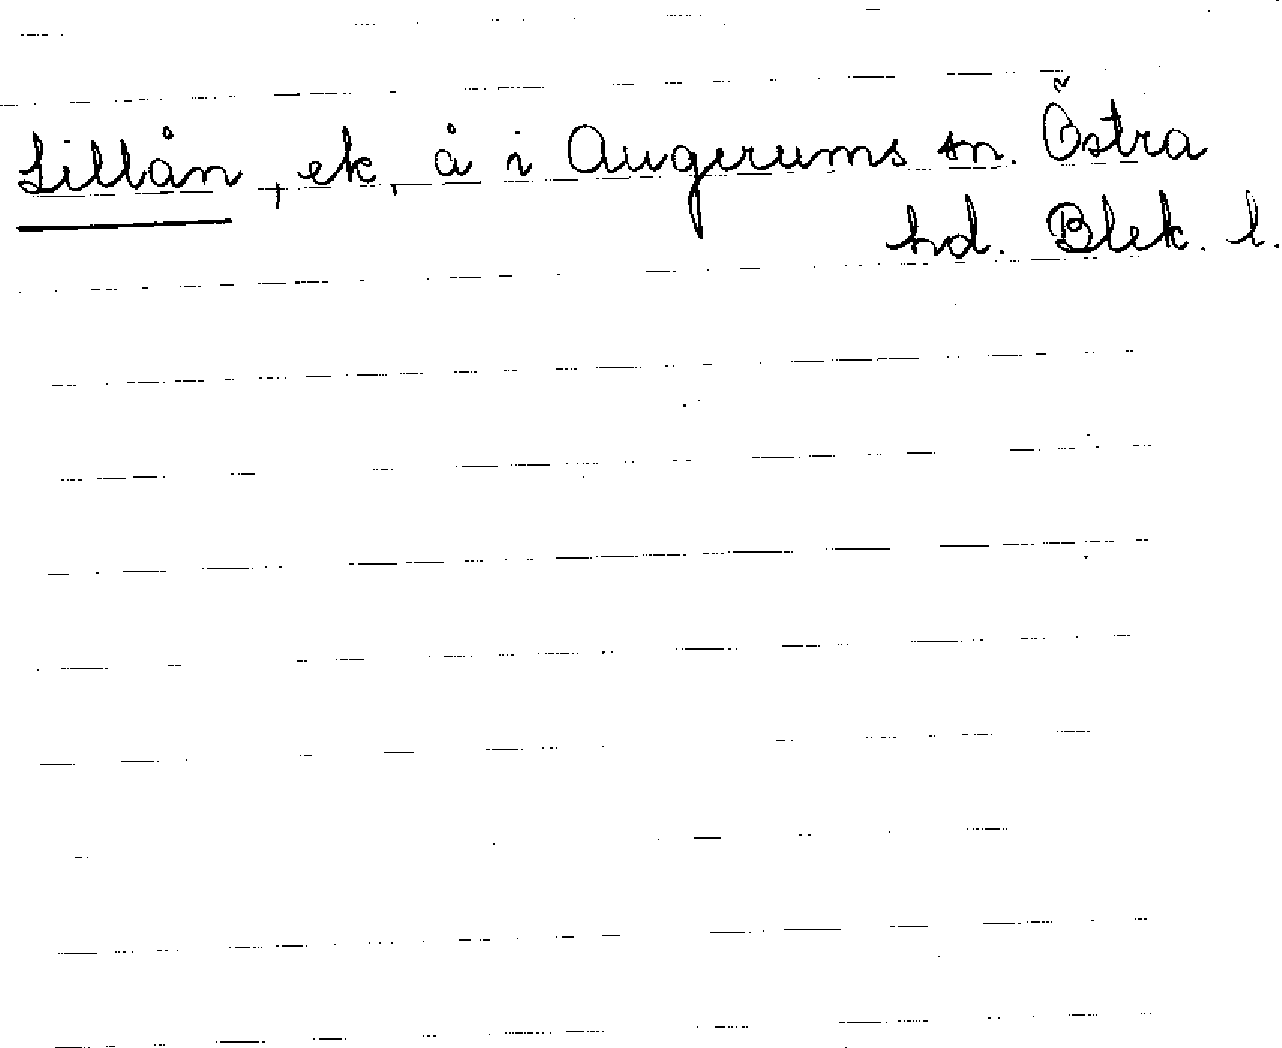 Lillån, ek, å i Augerums sn. Östra
hd. Blek. l.